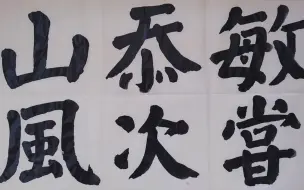 敏嘗
忝次
山風